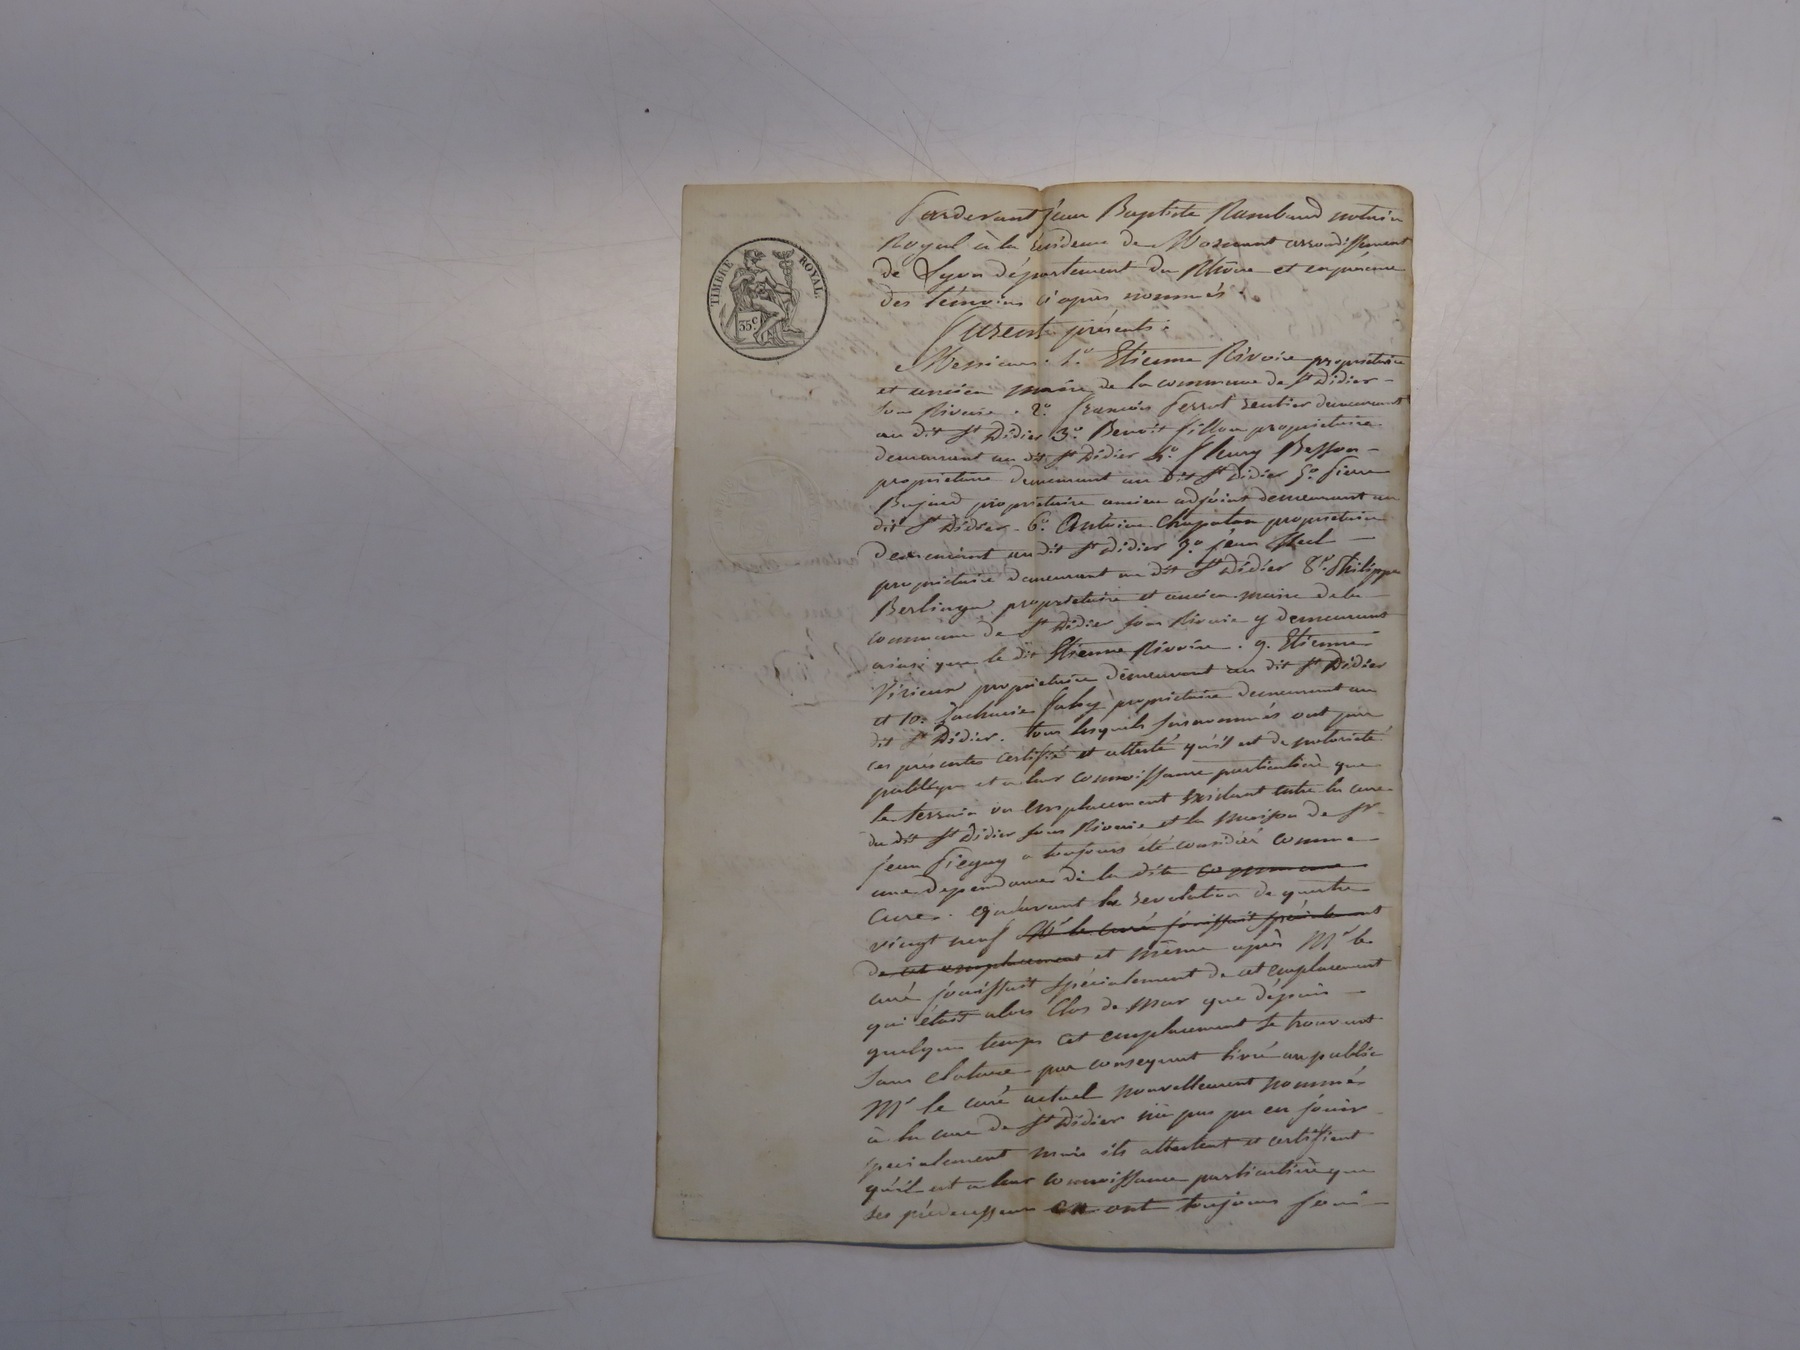 TIMBRE ROYAL.
35c
Pardevant jean Baptiste Rambaud notaire
Royal à la residence de Mornant arrondissement
de Lyon département du Rhône et en présence
des témoins ci après nommés.
furent présents:
Messieurs. 1.o Etienne Rivoire propriétaire
et ancien maire de la commune de St Didier
sous Riverie. 2.o françois ferrot rentier demeurant
au dit St Didier 3.o Benoit fillon propriétaire
demeurant au dit St Didier 4.o fleury Besson
propriétaire demeurant au dit St Didier 5.o Pierre
propriétaire ancien adjoint demeurant au
dit St Didier. 6.o Antoine Chapelan propriétaire
demeurant au dit St Didier 7.o jean
propriétaire demeurant au dit St Didier 8.o Philippe
propriétaire et ancien maire de la
commune de St Didier sous Riverie y demeurant
ainsi que le dit Etienne Rivoire. 9. Etienne
Virieux propriétaire demeurant au dit St Didier
et 10. Zacharie propriétaire demeurant au
dit St Didier. tous lesquels susnommés ont par
ces présentes certifié et attesté qu'il est de notoriété
publique et a leur connoissance particulière que
le terrain ou emplacement existant entre la cure
du dit St Didier sous Riverie et la maison de Sr
jean a toujours été considéré comme
une dependance de la dite commune
cure. qu'avant la revolution de quatre
vingt neuf Mr le curé jouissait spécialement
de cet emplacement et même après Mr le
curé jouissait spécialement de cet emplacement
qui était alors Clos de mur que dépuis
quelques temps cet emplacement se trouvant
sans cloture par consequent livré au public
Mr le curé actuel nouvellement nommé
à la cure de St Didier n'a pas pu en jouir
specialement mais ils attestent et certifient
qu'il est a leur connoissance particulière que
ses prédecesseurs en ont toujours joui